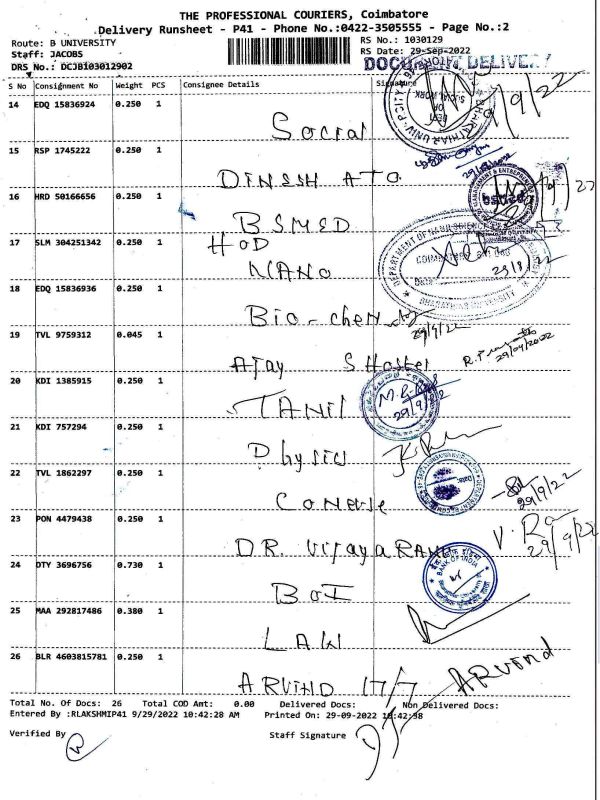 THE PROFESSIONAL COURIERS, Coimbatore
Delivery Runsheet - P41 - Phone No.:0422-3505555 - Page No.:2
Route: B UNIVERSITY
RS No.: 1030129
Staff: JACOBS
RS Date: 29-Sep-2022
DRS No.: DCJBI03012902
DOCUMENT DELIVERY
S No Consignment No Weight PCS Consignee Details Signature
14 EDQ 15836924 0.250 1
Social
15 RSP 1745222 0.250 1
DINESH ATO
16 HRD 50166656 0.250 1
BSMED
17 SLM 304251342 0.250 1
HOD
NANO
18 EDQ 15836936 0.250 1
Bio-chem
29/9/22
19 TVL 9759312 0.045 1
AJAY S Hostel
29/09/2022
20 KDI 1385915 0.250 1
TAMIL
29/9/22
21 KDI 757294 0.250 1
Physics
22 TVL 1862297 0.250 1
29/9/22
23 PON 4479438 0.250 1
DR. Vijaya RANI
29/9/22
24 DTY 3696756 0.730 1
BOI
BANK OF INDIA
25 MAA 292817486 0.380 1
LAW
26 BLR 4603815781 0.250 1
ARVIND 17/7
ARVIND
Total No. Of Docs: 26 Total COD Amt: 0.00 Delivered Docs: Non Delivered Docs:
Entered By :RLAKSHMIP41 9/29/2022 10:42:28 AM Printed On: 29-09-2022 10:42:38
Verified By
Staff Signature